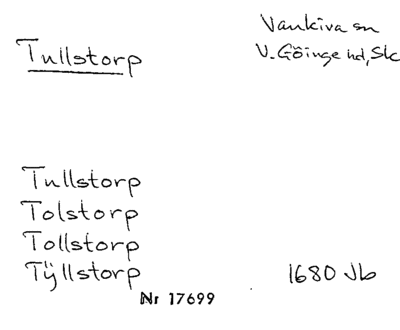 Vankiva sn
Tullstorp V. Göinge hd, Sk
Tullstorp
Tolstorp
Tollstorp
Tÿllstorp 1680 Jb
Nr 17699